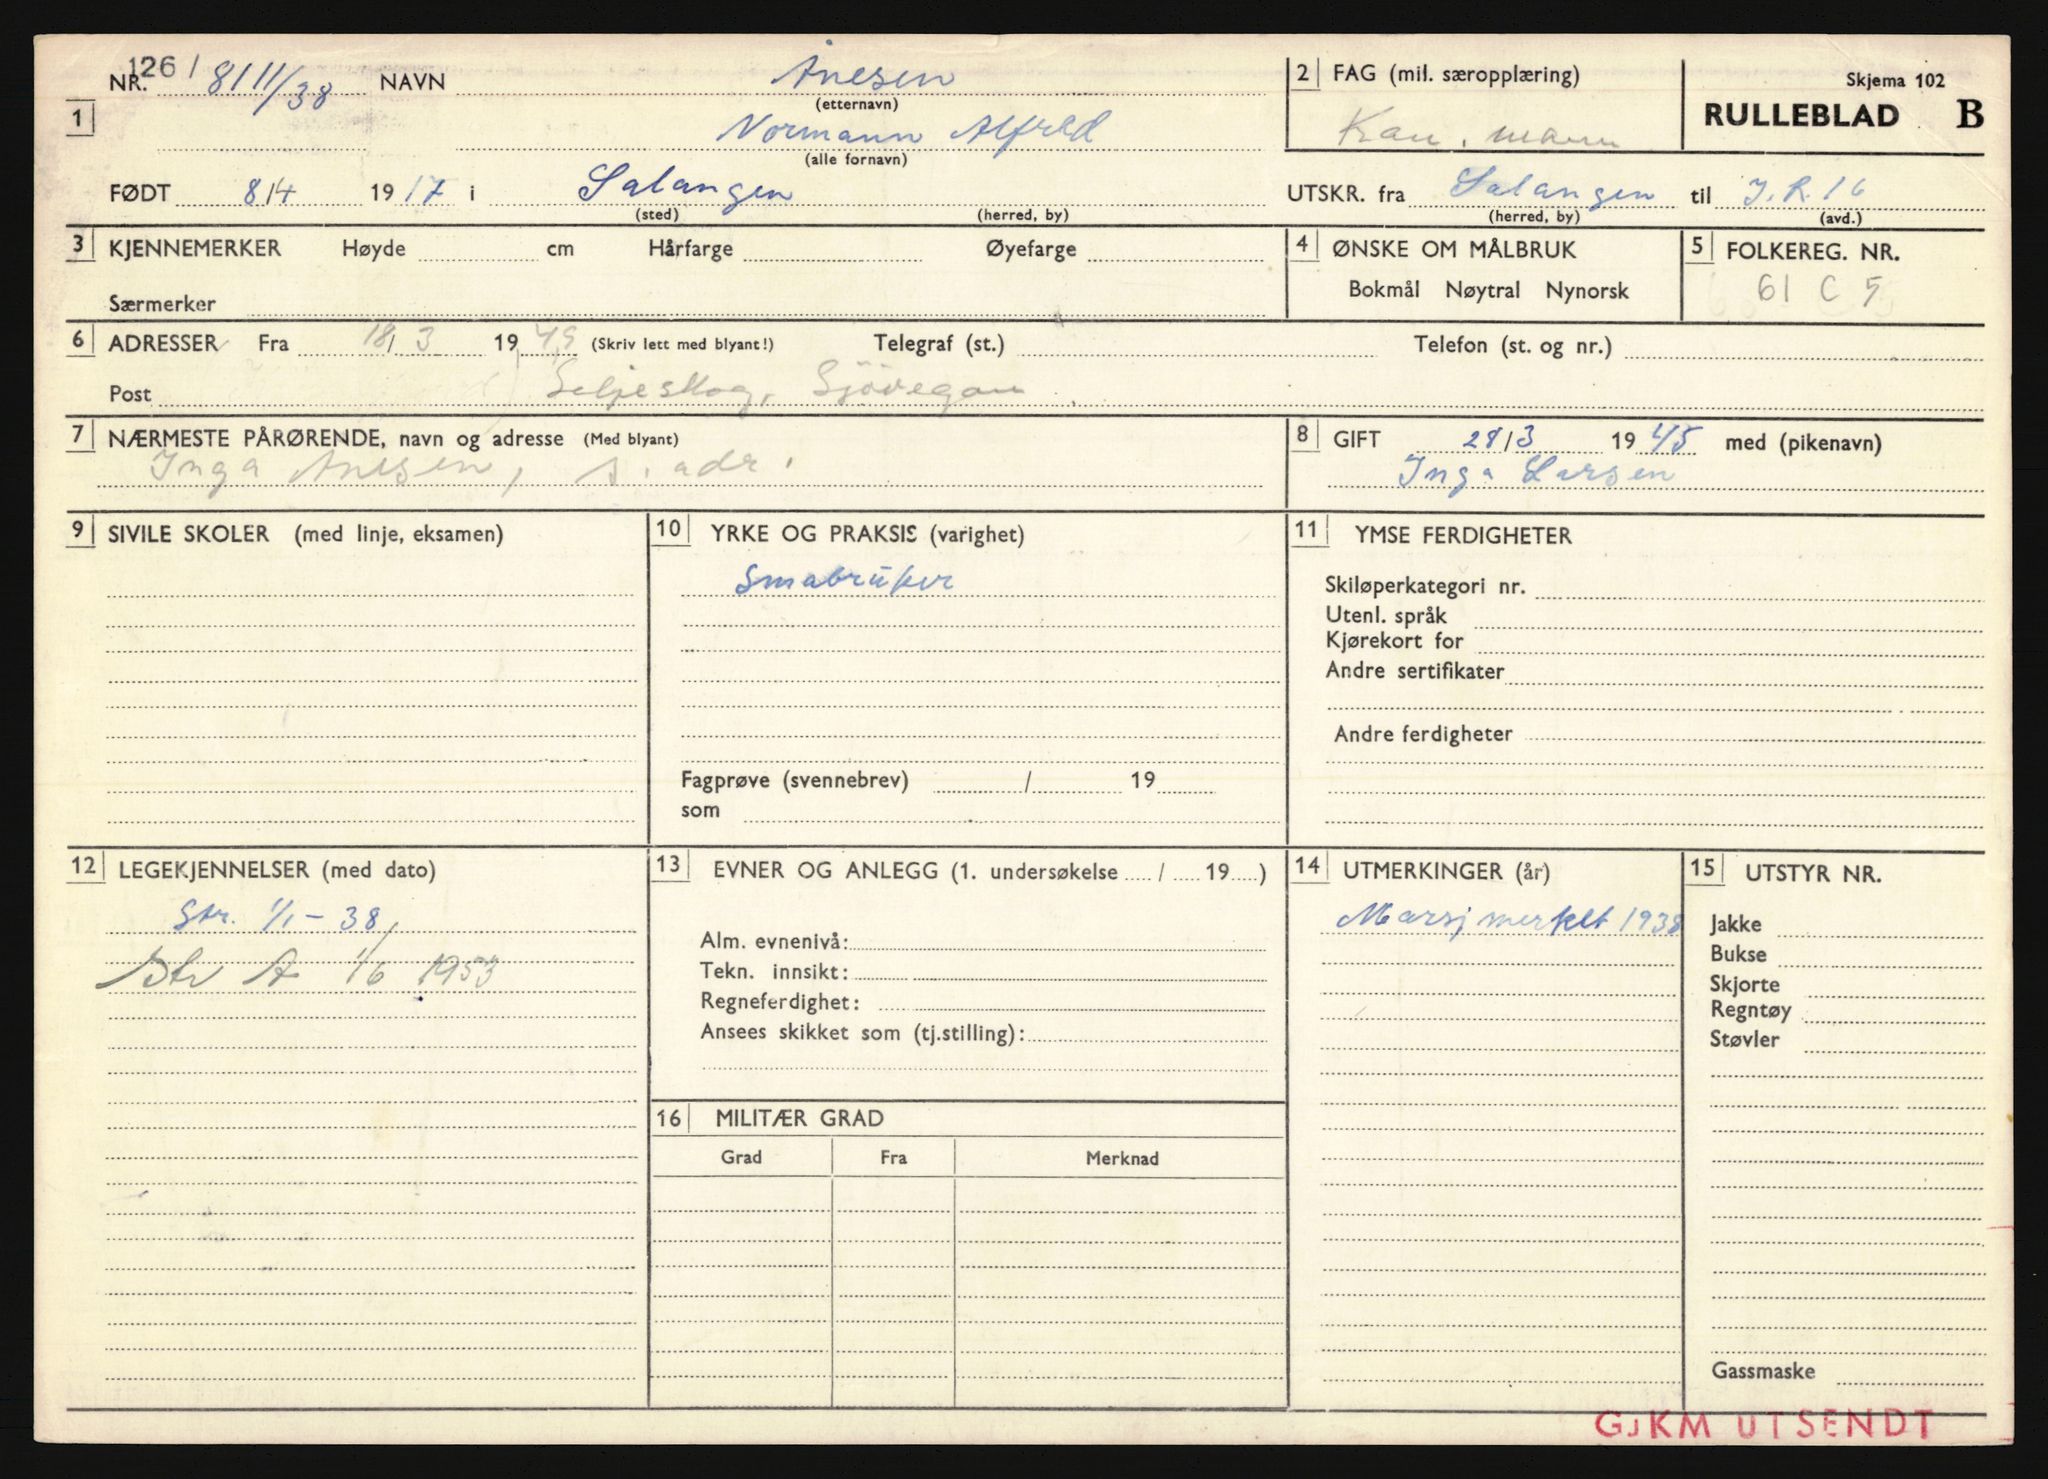 NR. 126 / 8111/38 NAVN Ånesen
(etternavn)
2 FAG (mil. særopplæring)
Skjema 102
1
Normann Alfred
(alle fornavn)
Kan. mann
RULLEBLAD B
FØDT 8/4 1917 i Salangen
(sted) (herred, by)
UTSKR. fra Salangen til J.R. 16
(herred, by) (avd.)
3 KJENNEMERKER Høyde cm Hårfarge Øyefarge
Særmerker
4 ØNSKE OM MÅLBRUK
Bokmål Nøytral Nynorsk
5 FOLKEREG. NR.
61 C 5
6 ADRESSER Fra 18/3 1949 (Skriv lett med blyant!) Telegraf (st.) Telefon (st. og nr.)
Post Seljeskog, Sjøvegan
7 NÆRMESTE PÅRØRENDE, navn og adresse (Med blyant)
Inga Anesen, s. adr.
8 GIFT 28/3 1945 med (pikenavn)
Inga Larsen
9 SIVILE SKOLER (med linje, eksamen)
10 YRKE OG PRAKSIS (varighet)
Smabruker
Fagprøve (svennebrev) / 19
som
11 YMSE FERDIGHETER
Skiløperkategori nr.
Utenl. språk
Kjørekort for
Andre sertifikater
Andre ferdigheter
12 LEGEKJENNELSER (med dato)
Str. 1/1 - 38
Str A 1/6 1953
13 EVNER OG ANLEGG (1. undersøkelse / 19 )
Alm. evnenivå:
Tekn. innsikt:
Regneferdighet:
Ansees skikket som (tj.stilling):
14 UTMERKINGER (år)
Marsjmerket 1938
15 UTSTYR NR.
Jakke
Bukse
Skjorte
Regntøy
Støvler
Gassmaske
16 MILITÆR GRAD
Grad Fra Merknad
GJKM UTSENDT